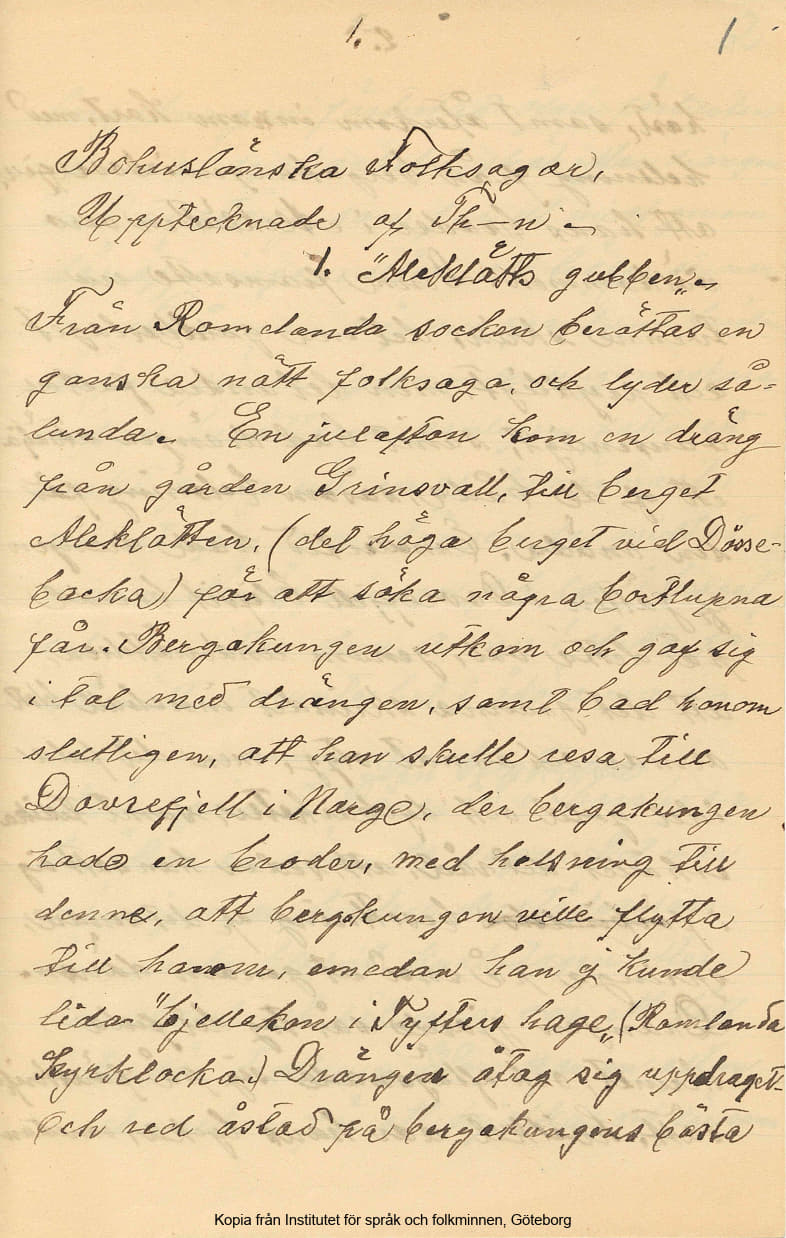 1. 1
Bohuslänska Folksagor,
Upptecknade af Th–n.
1. "Aleklätts gubben".
Från Romelanda socken berättas en
ganska nätt folksaga, och lyder så-
lunda. En julafton kom en dräng
från gården Grinsvall, till berget
Aleklätten, (det höga berget vid Dösse-
backa) för att söka några bortlupna
får. Bergakungen utkom och gaf sig
i tal med drängen, samt bad honom
slutligen, att han skulle resa till
Dovrefjell i Norge, der bergakungen
hade en broder, med helsning till
denne, att bergkungen ville flytta
till honom, emedan han ej kunde
lida "bjellekon i Tyfters hage" (Romlanda
Kyrklocka.) Drängen åtog sig uppdraget
och red åstad på bergakungens bästa
Kopia från Institutet för språk och folkminnen, Göteborg